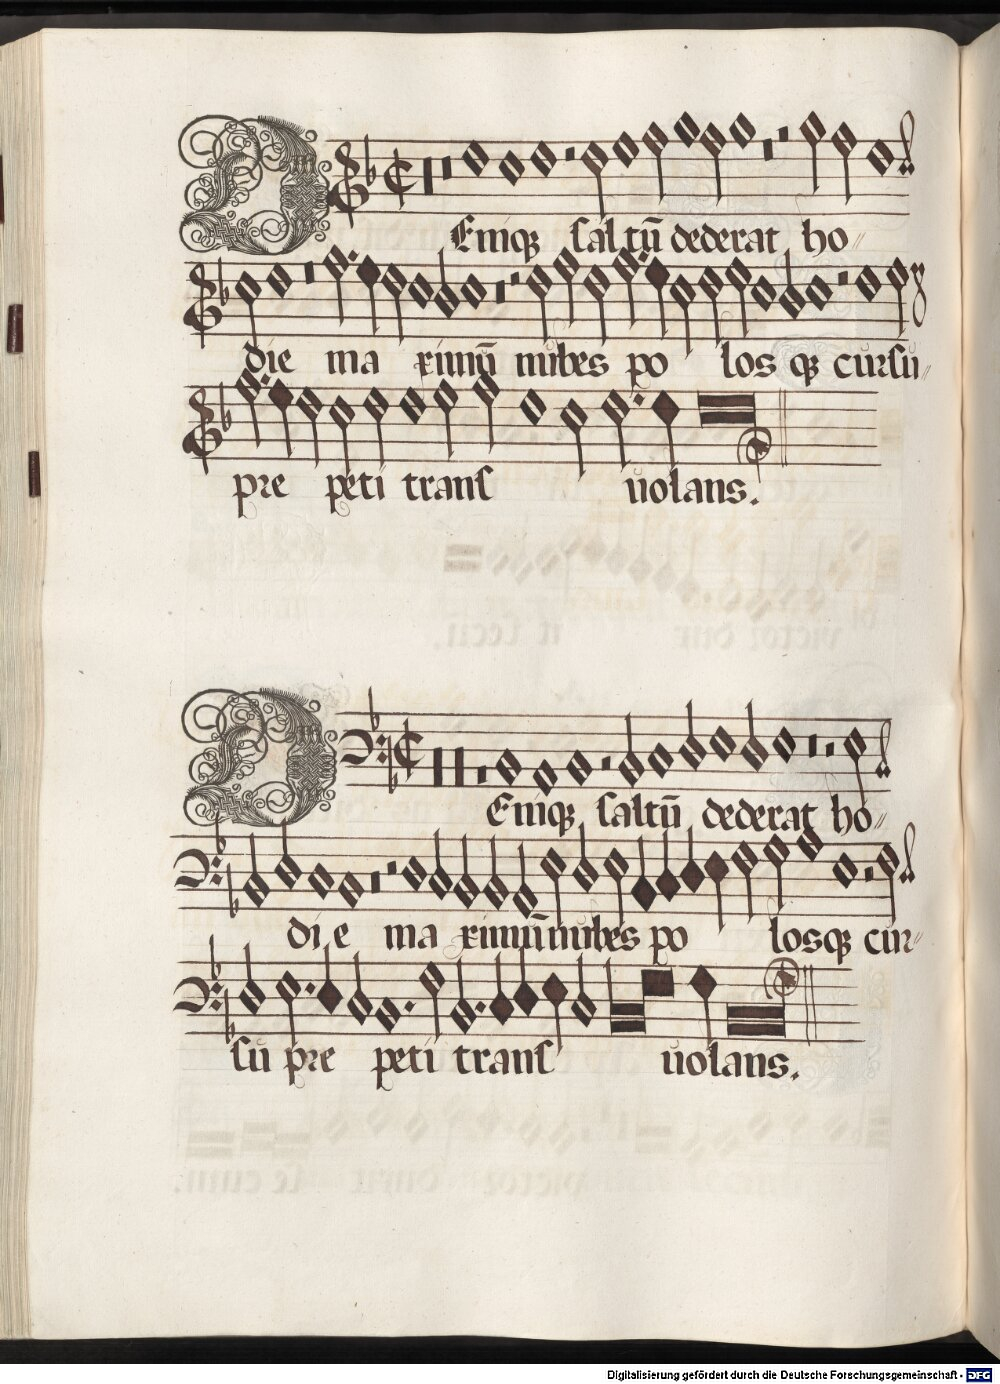 DEniqꝫ saltū dederat ho〃
die ma ximū nubes po los qꝫ cursu〃
pre peti trans uolans.
DEniqꝫ saltū dederat ho〃
die ma ximū nubes po losqꝫ cur〃
su pre peti trans uolans.
Digitalisierung gefördert durch die Deutsche Forschungsgemeinschaft - DFG